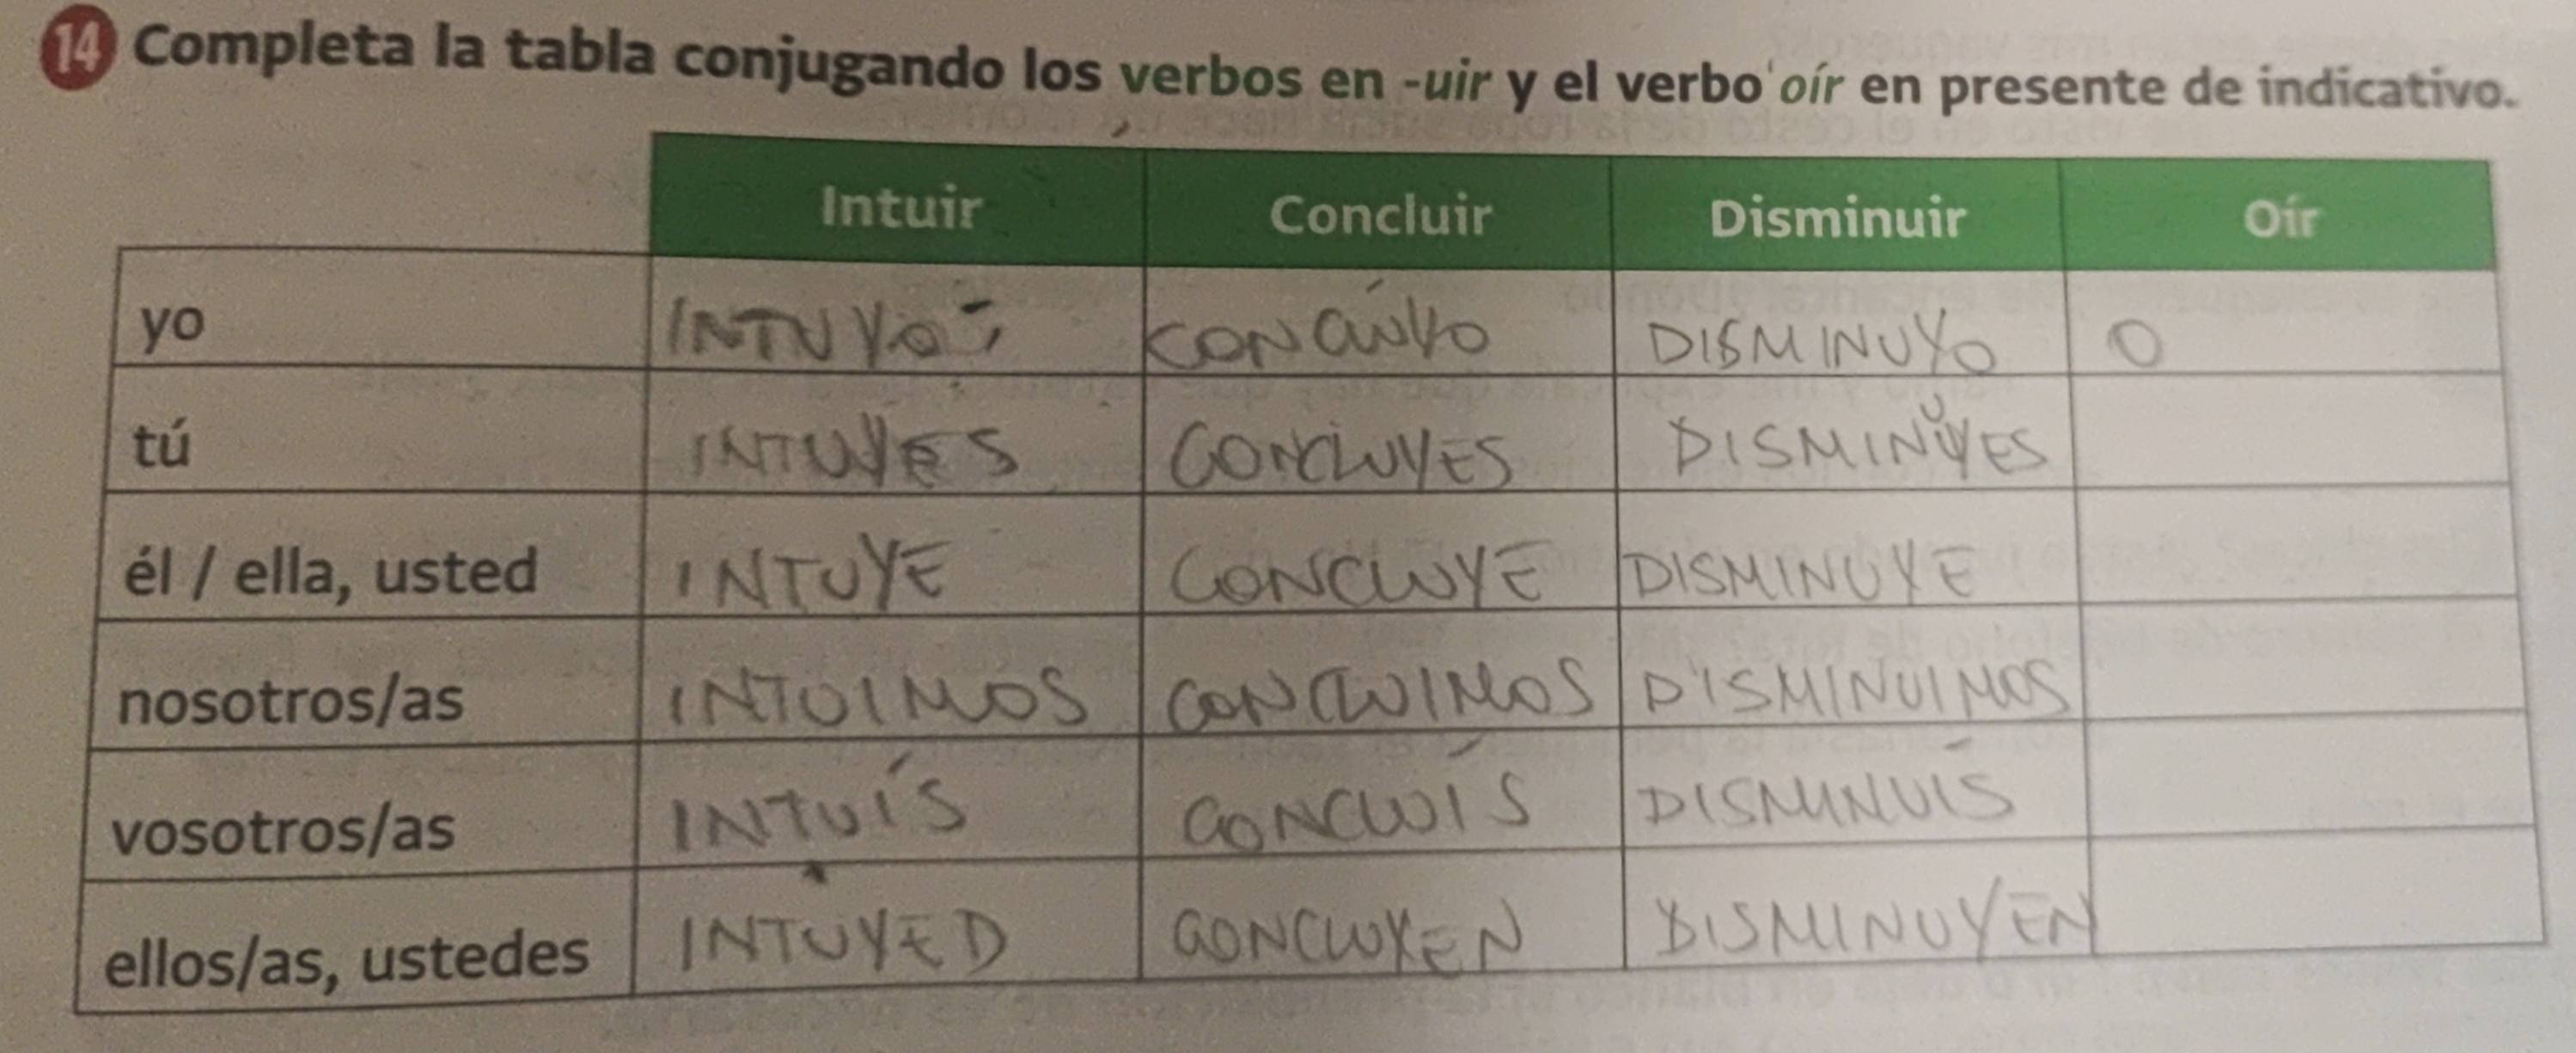 14 Completa la tabla conjugando los verbos en -uir y el verbo oír en presente de indicativo.
Intuir Concluir Disminuir Oír
yo INTUYO CONCLUYO DISMINUYO O
tú INTUYES CONCLUYES DISMINUYES
él / ella, usted INTUYE CONCLUYE DISMINUYE
nosotros/as INTUIMOS CONCLUIMOS DISMINUIMOS
vosotros/as INTUÍS CONCLUÍS DISMINUÍS
ellos/as, ustedes INTUYED CONCLUYEN DISMINUYEN